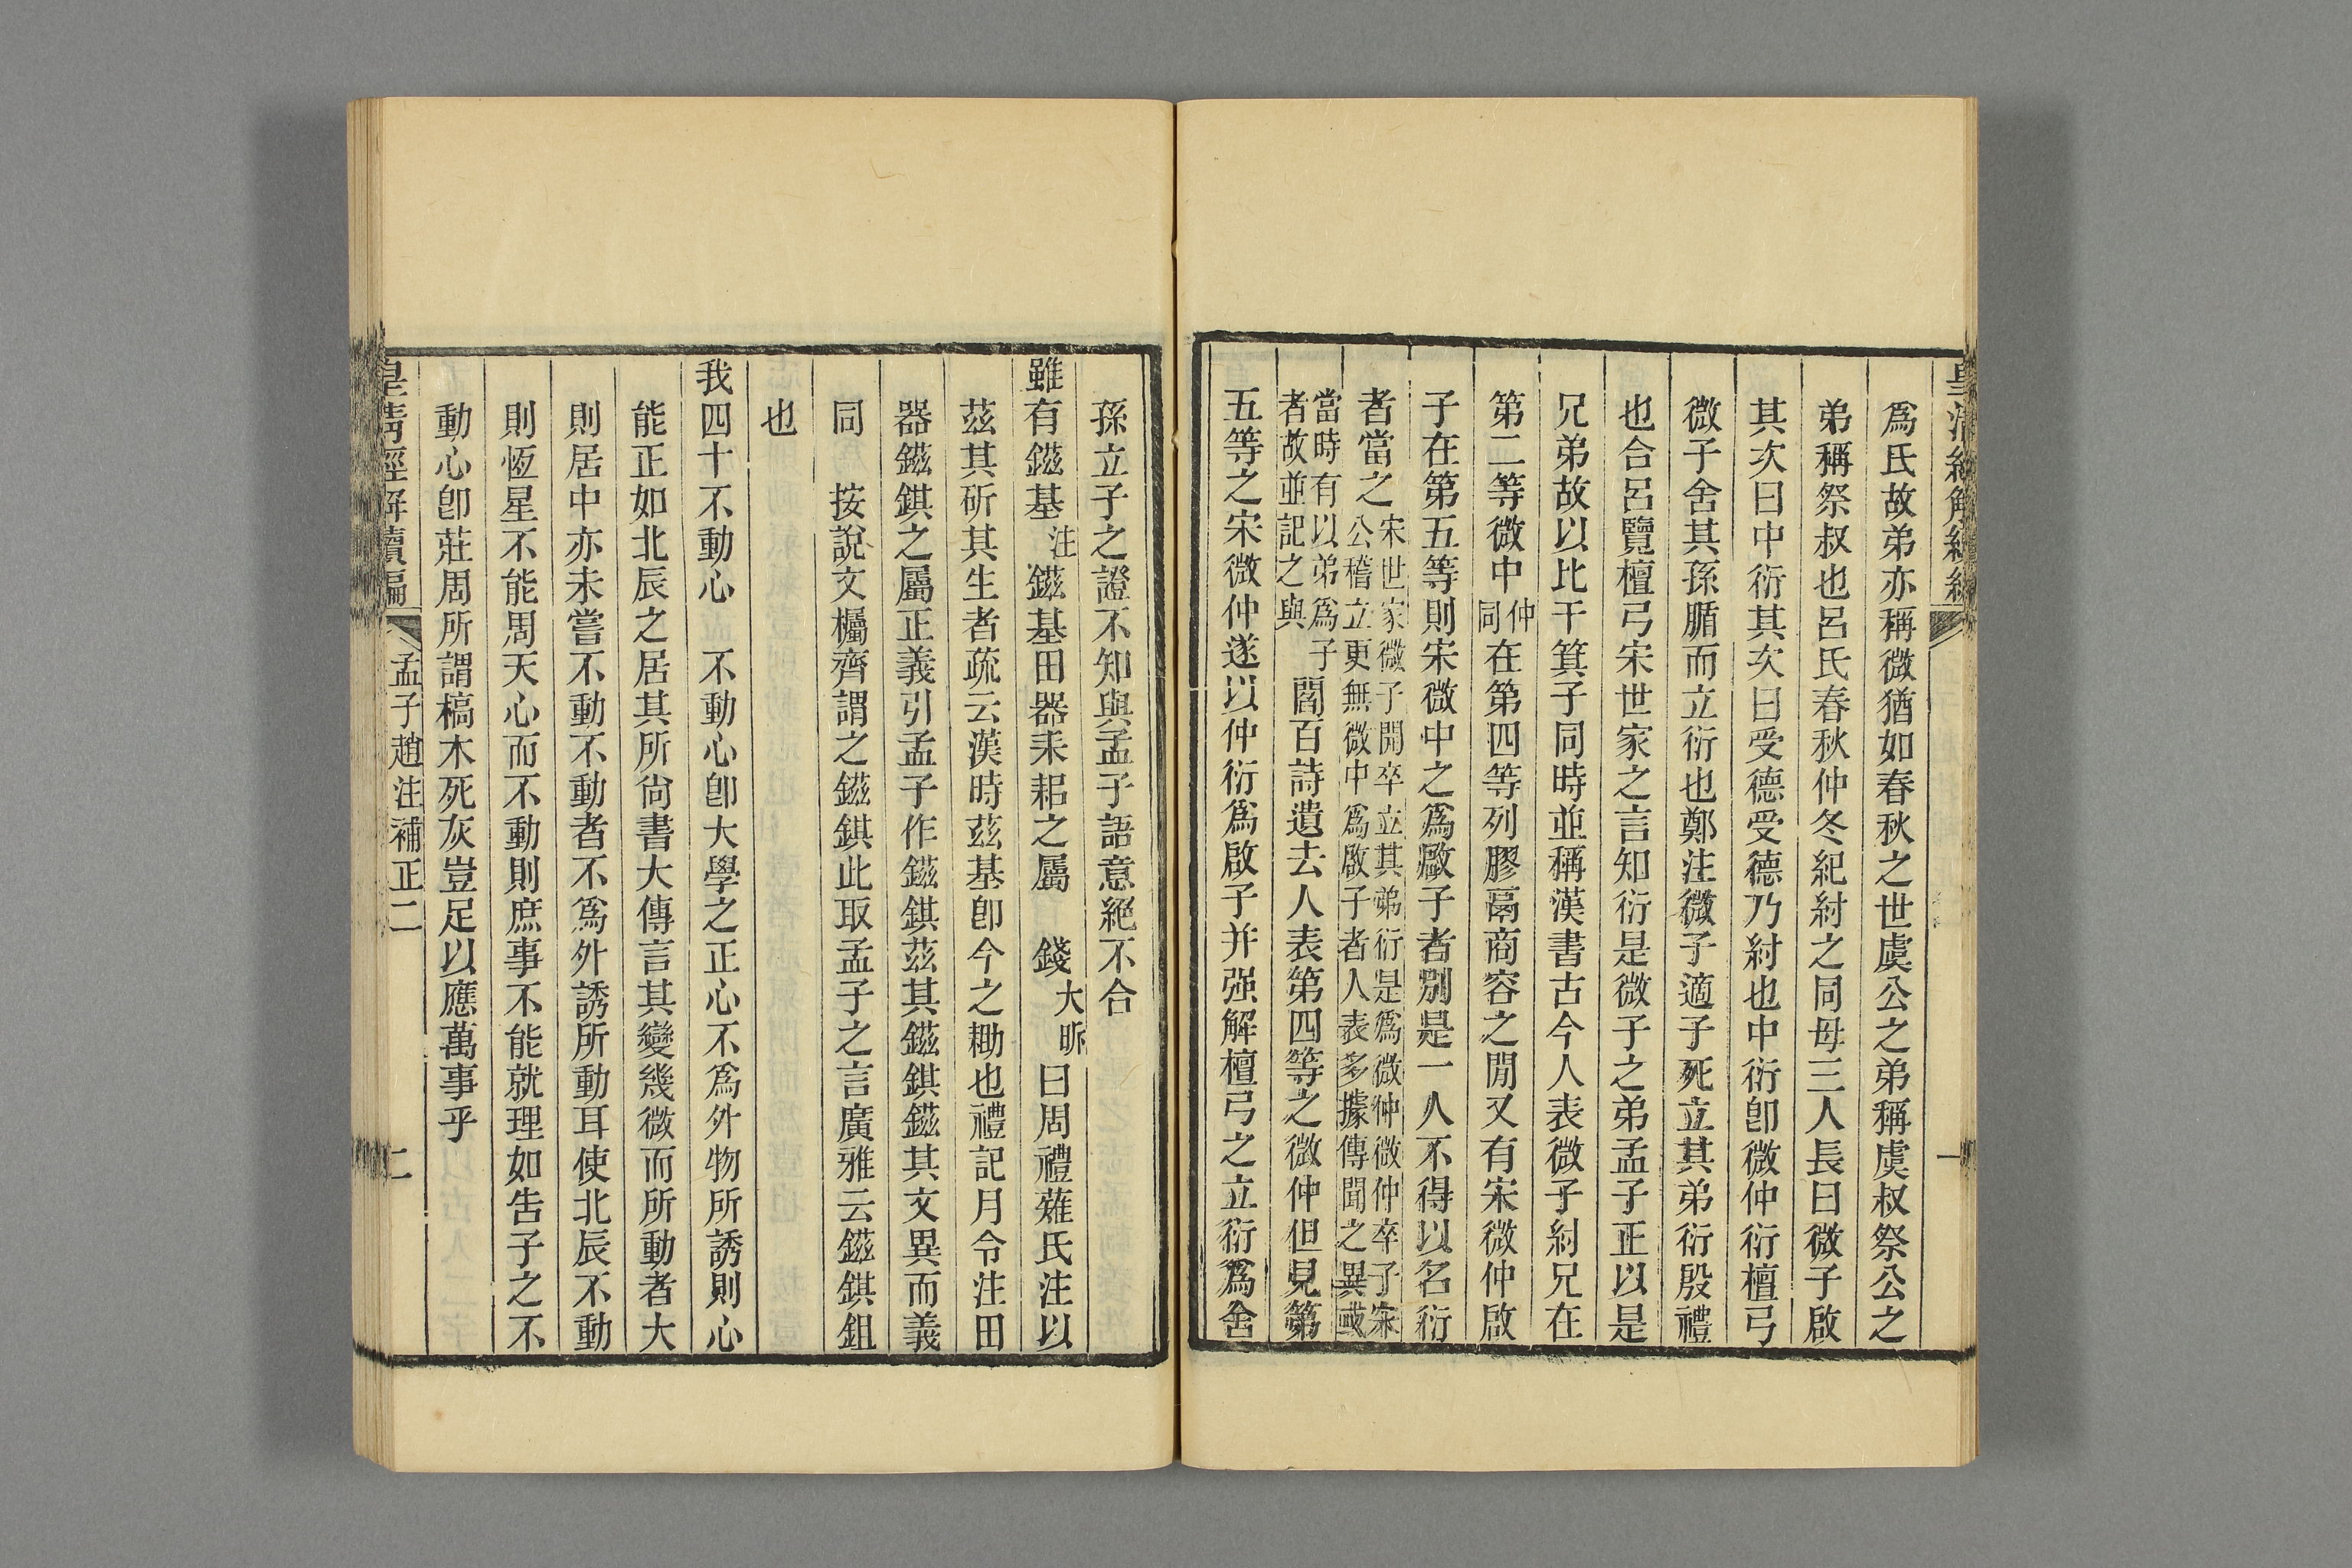 爲氏故弟亦稱微猶如春秋之世虞公之弟稱虞叔祭公之
弟稱祭叔也呂氏春秋仲冬紀紂之同母三人長曰微子啟
其次曰中衍其次曰受德受德乃紂也中衍卽微仲衍檀弓
微子舍其孫腯而立衍也鄭注微子適子死立其弟衍殷禮
也合呂覽檀弓宋世家之言知衍是微子之弟孟子正以是
兄弟故以比干箕子同時並稱漢書古今人表微子紂兄在
第二等微中仲同在第四等列膠鬲商容之閒又有宋微仲啟
子在第五等則宋微中之爲啟子者別是一人不得以名衍
者當之宋世家微子開卒立其弟衍是爲微仲微仲卒子宋
公稽立更無微中爲啟子者人表多據傳聞之異或
當時有以弟爲子
者故並記之與
閻百詩遺去人表第四等之微仲但見第
五等之宋微仲遂以仲衍爲啟子并强解檀弓之立衍爲舍
孫立子之證不知與孟子語意絕不合
雖有鎡基注鎡基田器耒耜之屬 錢大昕曰周禮薙氏注以
茲其斫其生者疏云漢時茲基卽今之耡也禮記月令注田
器鎡錤之屬正義引孟子作鎡錤茲其鎡錤鎡其文異而義
同 按說文欘齊謂之鎡錤此取孟子之言廣雅云鎡錤鉏
也
我四十不動心 不動心卽大學之正心不爲外物所誘則心
能正如北辰之居其所尙書大傳言其變幾微而所動者大
則居中亦未嘗不動不動者不爲外誘所動耳使北辰不動
則恆星不能周天心而不動則庶事不能就理如告子之不
動心卽莊周所謂槁木死灰豈足以應萬事乎
皇淸經解續編
孟子趙注補正二
二